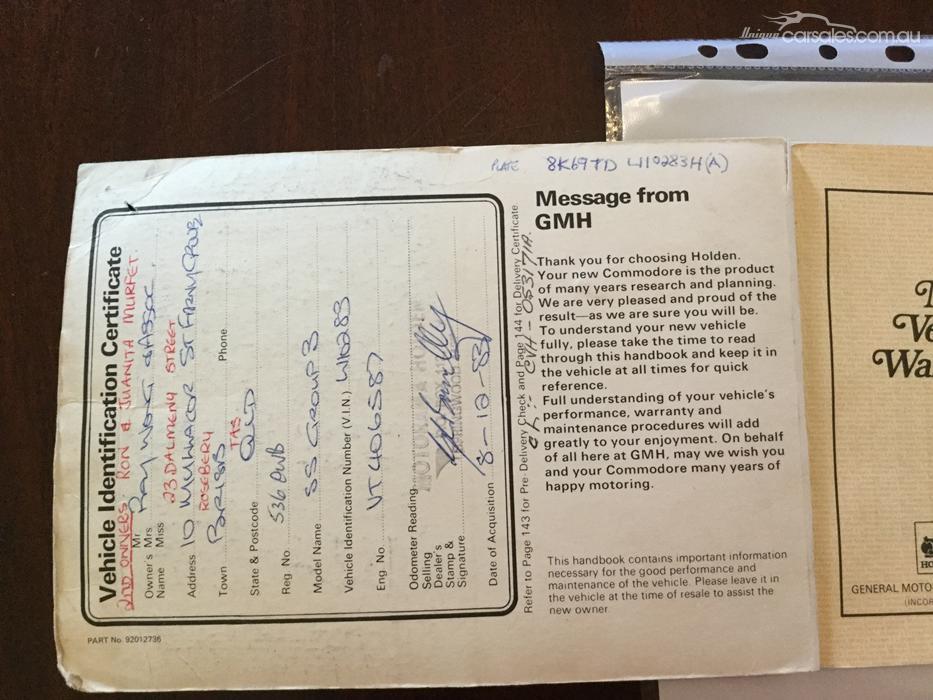 Unique carsales.com.au
PLATE 8K69TD L410283H (A)
Vehicle Identification Certificate
2ND OWNERS: RON & JUANITA MURFET
Mr.
Owner's Mrs
Name Miss
23 DALMENY STREET
Address 10
ROSEBERY
Town
Phone
TAS
State & Postcode QLD
Reg No.
Model Name SS GROUP 3
Vehicle Identification Number (V.I.N.) L410283
Eng. No. VT406587
Odometer Reading
Selling
Dealer's
Stamp &
Signature
Date of Acquisition 8-12-83
Refer to Page 143 for Pre-Delivery Check and Page 144 for Delivery Certificate.
PART No. 92012736
Message from
GMH
Thank you for choosing Holden.
Your new Commodore is the product
of many years research and planning.
We are very pleased and proud of the
result—as we are sure you will be.
To understand your new vehicle
fully, please take the time to read
through this handbook and keep it in
the vehicle at all times for quick
reference.
Full understanding of your vehicle's
performance, warranty and
maintenance procedures will add
greatly to your enjoyment. On behalf
of all here at GMH, may we wish you
and your Commodore many years of
happy motoring.
This handbook contains important information
necessary for the good performance and
maintenance of the vehicle. Please leave it in
the vehicle at the time of resale to assist the
new owner.
Ve
Wa
HO
GENERAL MOTO
(INCOR